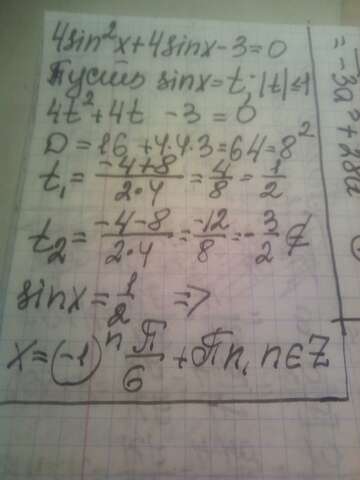 4sin²x+4sinx-3=0
Пусть sinx=t, |t|≤1
4t²+4t -3=0
D=16+4·4·3=64=8²
t₁=(-4+8)/(2·4)=4/8=1/2
t₂=(-4-8)/(2·4)=-12/8=-3/2 ∉
sinx=1/2 =>
x=(-1)ⁿ π/6 + πn, n∈Z
=-3a²+28a